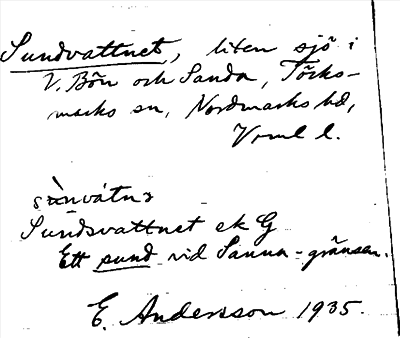 Sundvattnet, liten sjö i
V. Bön och Sanda, Töcks-
marks sn, Nordmarks hd,
Vrml l.
sùnvátnɜ
Sundsvattnet ek G
Ett sund vid Sanna-gränsen.
E. Andersson 1935.